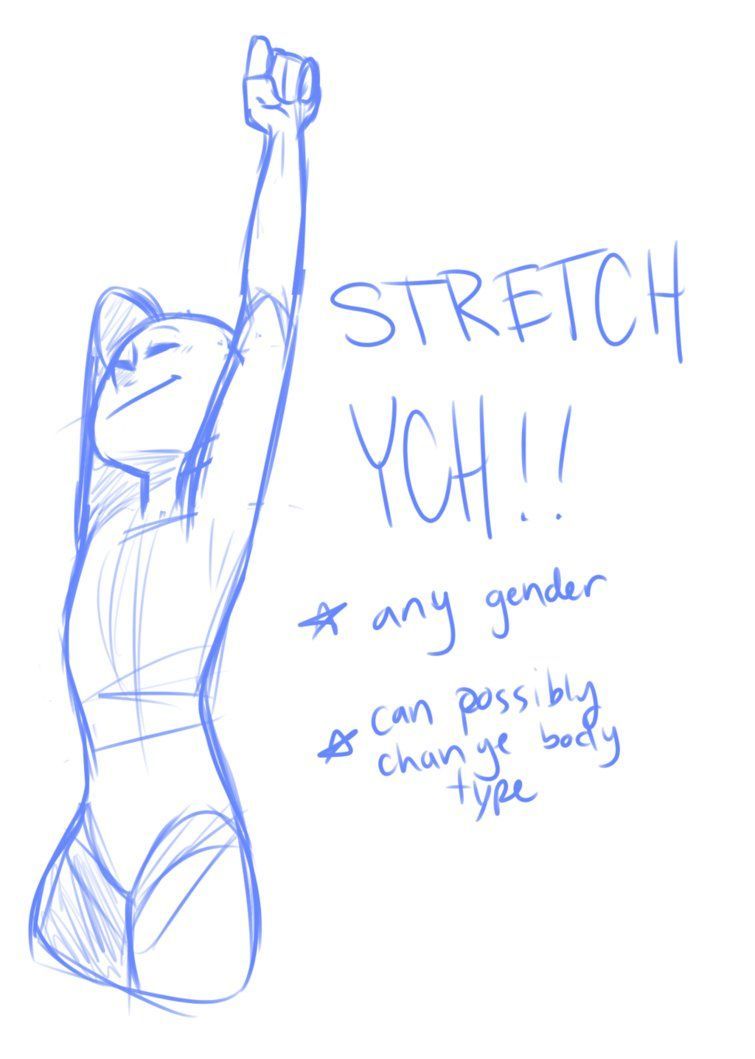 STRETCH
YCH!!
☆ any gender
☆ can possibly
change body
type